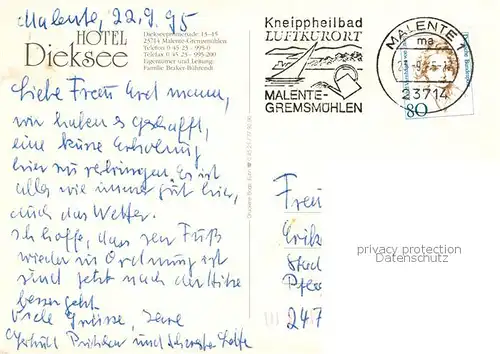 Malente, 22.9.95
HOTEL
Dieksee
Diekseepromenade 13-15
23714 Malente-Gremsmühlen
Telefon 0 45 23 - 995-0
Telefax 0 45 23 - 995-200
Eigentümer und Leitung:
Familie Becker-Bührendt
Liebe Frau Erdmann,
wir haben es geschafft,
eine kurze Erholung
hier zu verbringen. Es ist
alles wie immer gut hier,
auch das Wetter.
Ich hoffe, dass Fuß
wieder in Ordnung ist
und jetzt nach der Hitze
besser geht.
Viele Grüsse, Ihre
und
Kneippheilbad
LUFTKURORT
MALENTE-
GREMSMÜHLEN
MALENTE 1
ma
23714
80
Frau
Erik
Stad
247
privacy protection
Datenschutz